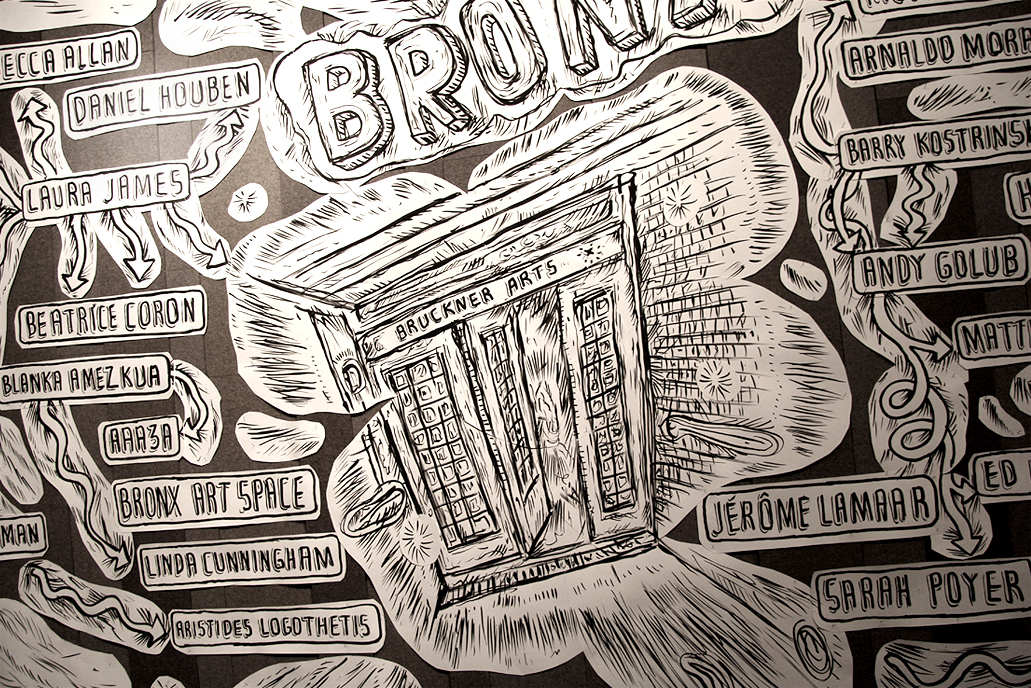 BRONX
ECCA ALLAN
DANIEL HOUBEN
LAURA JAMES
BEATRICE CORON
BLANKA AMEZKUA
AAA3A
BRONX ART SPACE
MAN
LINDA CUNNINGHAM
ARISTIDES LOGOTHETIS
BRUCKNER ARTS
ARNALDO MOR
BARRY KOSTRINS
ANDY GOLUB
MATT
ED
JÉRÔME LAMAAR
SARAH POYER